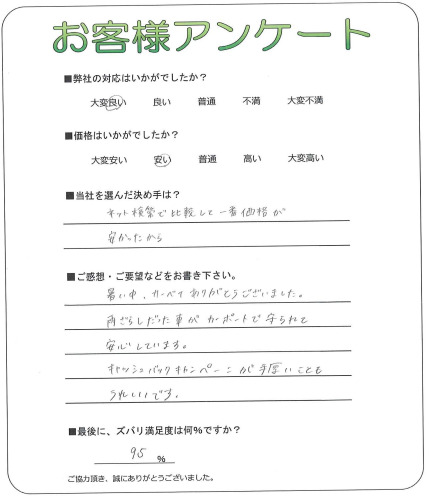 お客様アンケート
■弊社の対応はいかがでしたか？
大変良い 良い 普通 不満 大変不満
■価格はいかがでしたか？
大変安い 安い 普通 高い 大変高い
■当社を選んだ決め手は？
ネット検索で比較して一番価格が
安かったから
■ご感想・ご要望などをお書き下さい。
暑い中、ありがとうございました。
雨ざらしだった車がカーポートで守られて
安心しています。
キャッシュバックキャンペーンが手厚いことも
うれしいです。
■最後に、ズバリ満足度は何%ですか？
95 %
ご協力頂き、誠にありがとうございました。